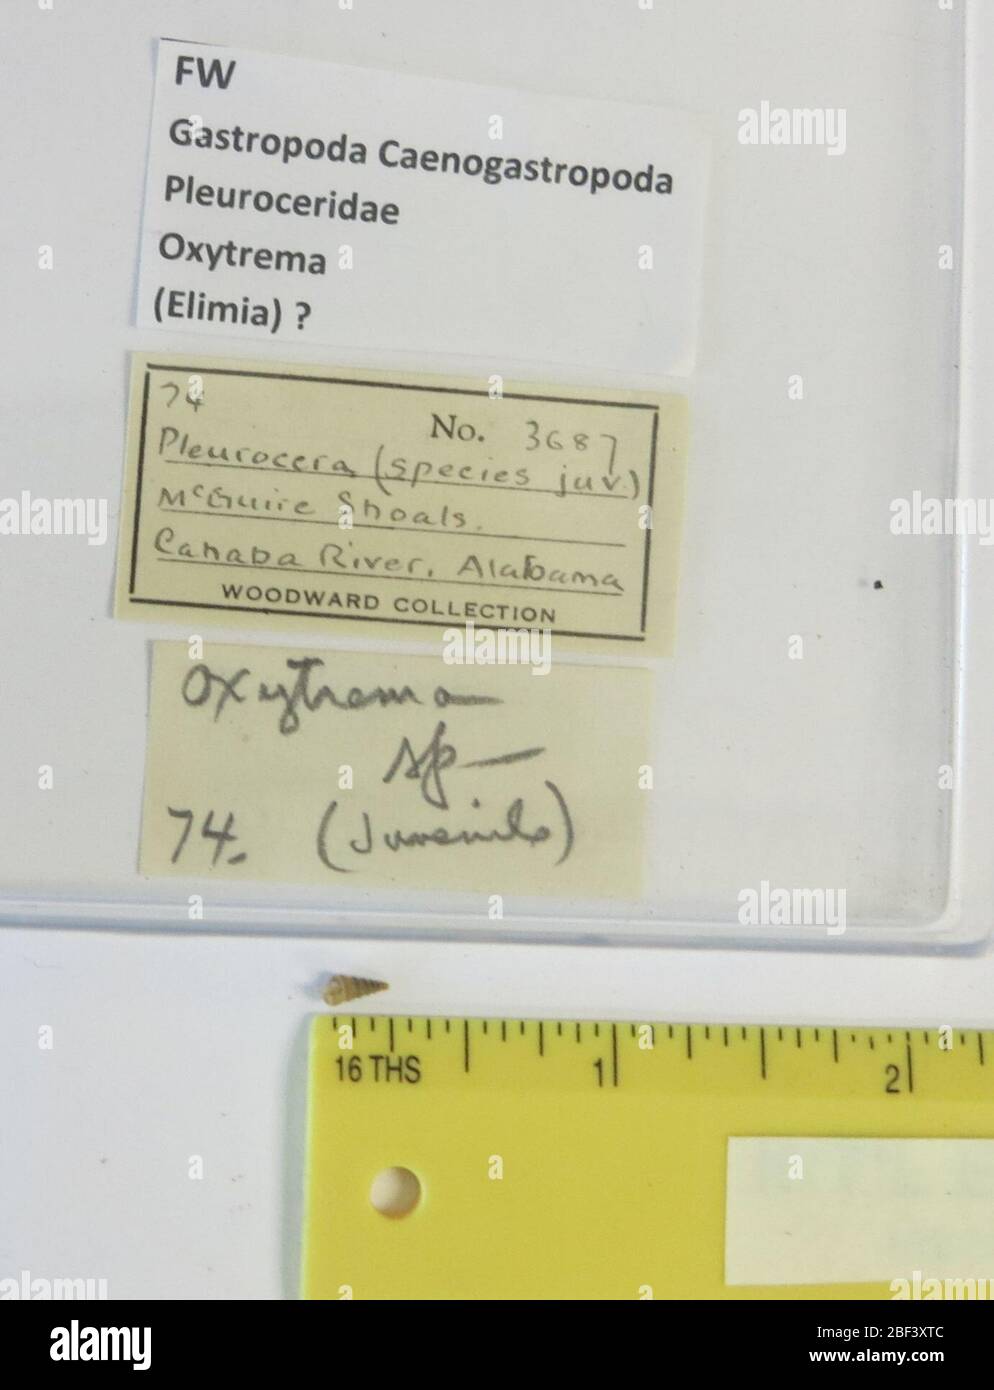 FW
Gastropoda Caenogastropoda
Pleuroceridae
Oxytrema
(Elimia) ?
74
No. 3687
Pleurocera (species juv.)
McGuire Shoals.
Cahaba River, Alabama
WOODWARD COLLECTION
Oxytrema
sp—
74. (Juvenile)
16 THS 1 2
alamy
Image ID: 2BF3XTC
www.alamy.com